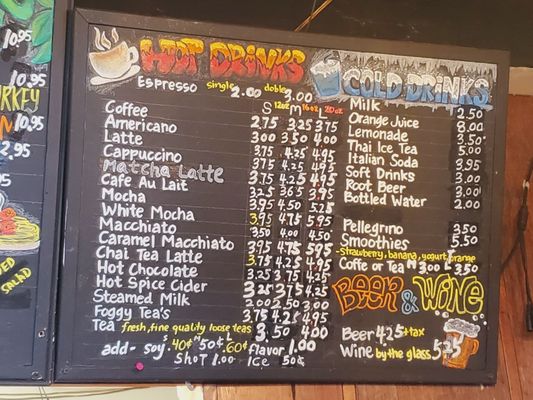 10.95
10.95
RKEY
10.95
2.95
SALAD
HOT DRINKS
Espresso single 2.00 doble 3.00
S 12oz M 16oz L 20oz
Coffee 2.75 3.25 3.75
Americano 3.00 3.50 4.00
Latte 3.75 4.25 4.95
Cappuccino 3.75 4.25 4.95
Matcha Latte 3.75 4.25 4.95
Cafe Au Lait 3.25 3.65 3.95
Mocha 3.95 4.50 5.25
White Mocha 3.95 4.75 5.95
Macchiato 3.50 4.00 4.50
Caramel Macchiato 3.95 4.75 5.95
Chai Tea Latte 3.75 4.25 4.95
Hot Chocolate 3.25 3.75 4.25
Hot Spice Cider 3.25 3.75 4.25
Steamed Milk 2.00 2.50 3.00
Foggy Tea's 3.75 4.25 4.95
Tea fresh, fine quality loose teas 3.50 4.00
add- soy S .40¢ M .50¢ L .60¢ flavor 1.00
Shot 1.00 Ice 50¢
COLD DRINKS
Milk 2.50
Orange Juice 8.00
Lemonade 3.50
Thai Ice Tea 5.00
Italian Soda 3.95
Soft Drinks 3.00
Root Beer 3.00
Bottled Water 2.00
Pellegrino 3.50
Smoothies 5.50
-Strawberry, banana, yogurt, orange
Coffe or Tea M 3.00 L 3.50
BEER & WINE
Beer 4.25 +tax
Wine by the glass 5.25